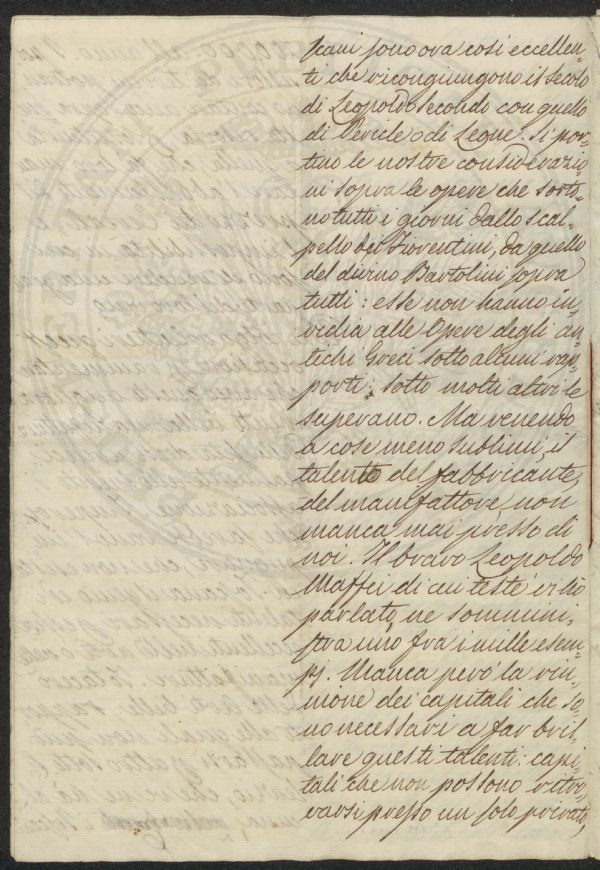 scani sono ora così eccellen-
ti che ricongiungono il secolo
di Leopoldo Secondo con quello
di Pericle o di Leone. Si por-
tino le nostre considerazio-
ni sopra le opere che sorto-
no tutti i giorni dallo scal-
pello dei Fiorentini, da quello
del divino Bartolini sopra
tutti: esse non hanno in-
vidia alle Opere degli an-
tichi Greci sotto alcuni rap-
porti: sotto molti altri le
superano. Ma venendo
a cose meno sublimi, il
talento del fabbricante,
del manifattore non
manca mai presso di
noi. Il bravo Leopoldo
Maffei di cui testè vi ho
parlato, ne sommini-
stra uno fra i mille esem-
pj. Manca però la riu-
nione dei capitali che so-
no necessari a far bril-
lare questi talenti: capi-
tali che non possono ritro-
varsi presso un solo privato,